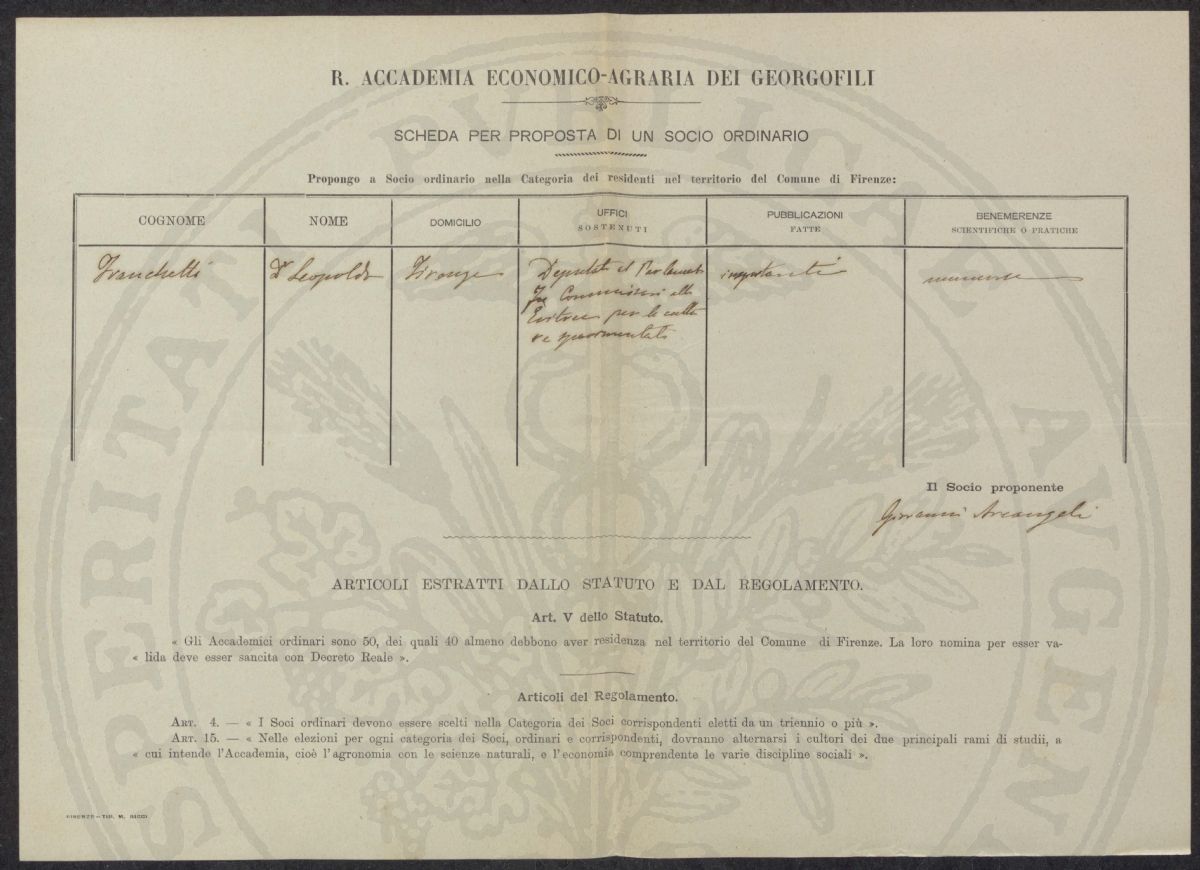 R. ACCADEMIA ECONOMICO-AGRARIA DEI GEORGOFILI
SCHEDA PER PROPOSTA DI UN SOCIO ORDINARIO
Propongo a Socio ordinario nella Categoria dei residenti nel territorio del Comune di Firenze:
COGNOME
NOME
DOMICILIO
UFFICI
SOSTENUTI
PUBBLICAZIONI
FATTE
BENEMERENZE
SCIENTIFICHE O PRATICHE
Franchetti
Dr Leopoldo
Firenze
Deputato al Parlamento
Commissario alla
Eritrea per le
importanti
numerose
Il Socio proponente
Giovanni Arcangeli
ARTICOLI ESTRATTI DALLO STATUTO E DAL REGOLAMENTO.
Art. V dello Statuto.
« Gli Accademici ordinari sono 50, dei quali 40 almeno debbono aver residenza nel territorio del Comune di Firenze. La loro nomina per esser va-
« lida deve esser sancita con Decreto Reale ».
Articoli del Regolamento.
ART. 4. — « I Soci ordinari devono essere scelti nella Categoria dei Soci corrispondenti eletti da un triennio o più ».
ART. 15. — « Nelle elezioni per ogni categoria dei Soci, ordinari e corrispondenti, dovranno alternarsi i cultori dei due principali rami di studii, a
« cui intende l'Accademia, cioè l'agronomia con le scienze naturali, e l'economia comprendente le varie discipline sociali ».
FIRENZE – TIP. M. RICCI
PROSPERITATI PUBLICAE AVGENDAE